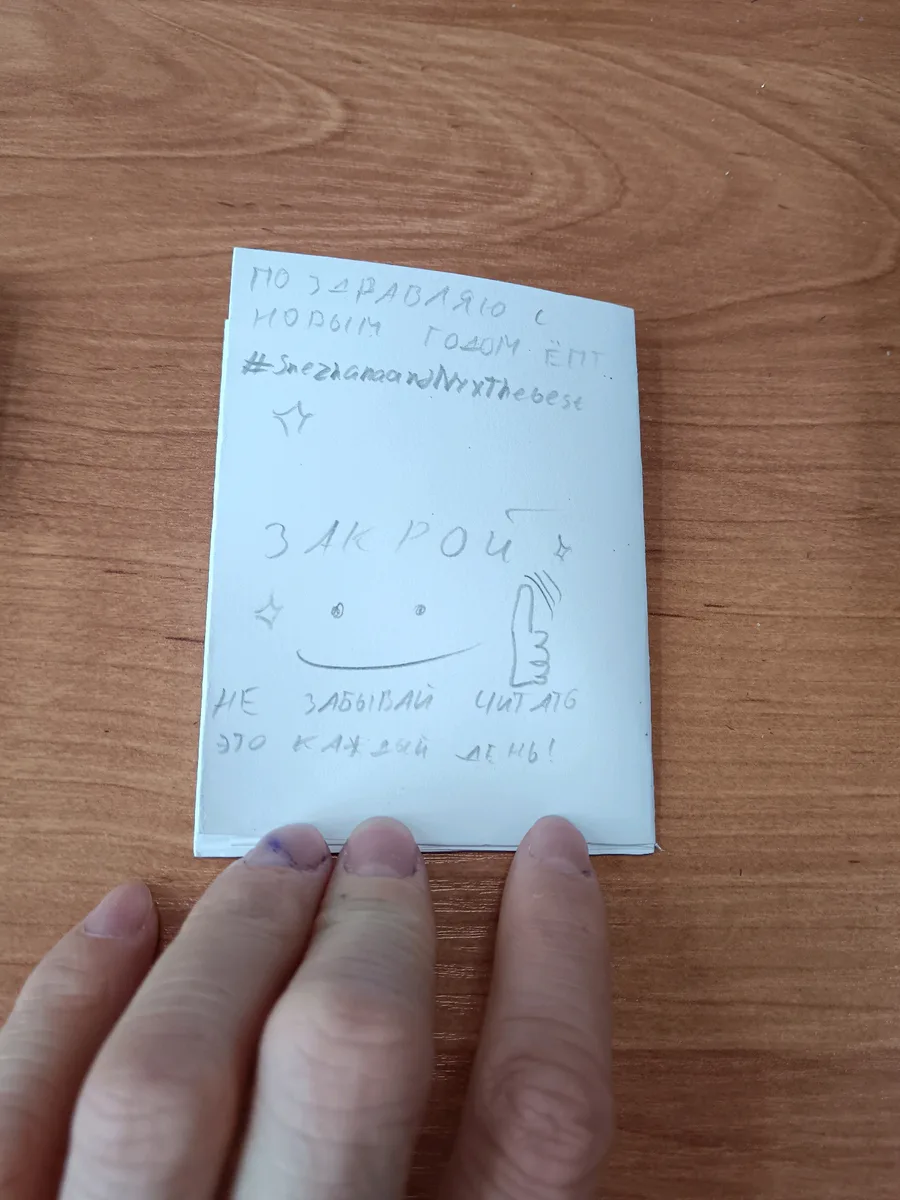 ПОЗДРАВЛЯЮ С
НОВЫМ ГОДОМ ЁПТ
#SnezhanaandNyxThebest
ЗАКРОЙ
НЕ ЗАБЫВАЙ ЧИТАТЬ
ЭТО КАЖДЫЙ ДЕНЬ!